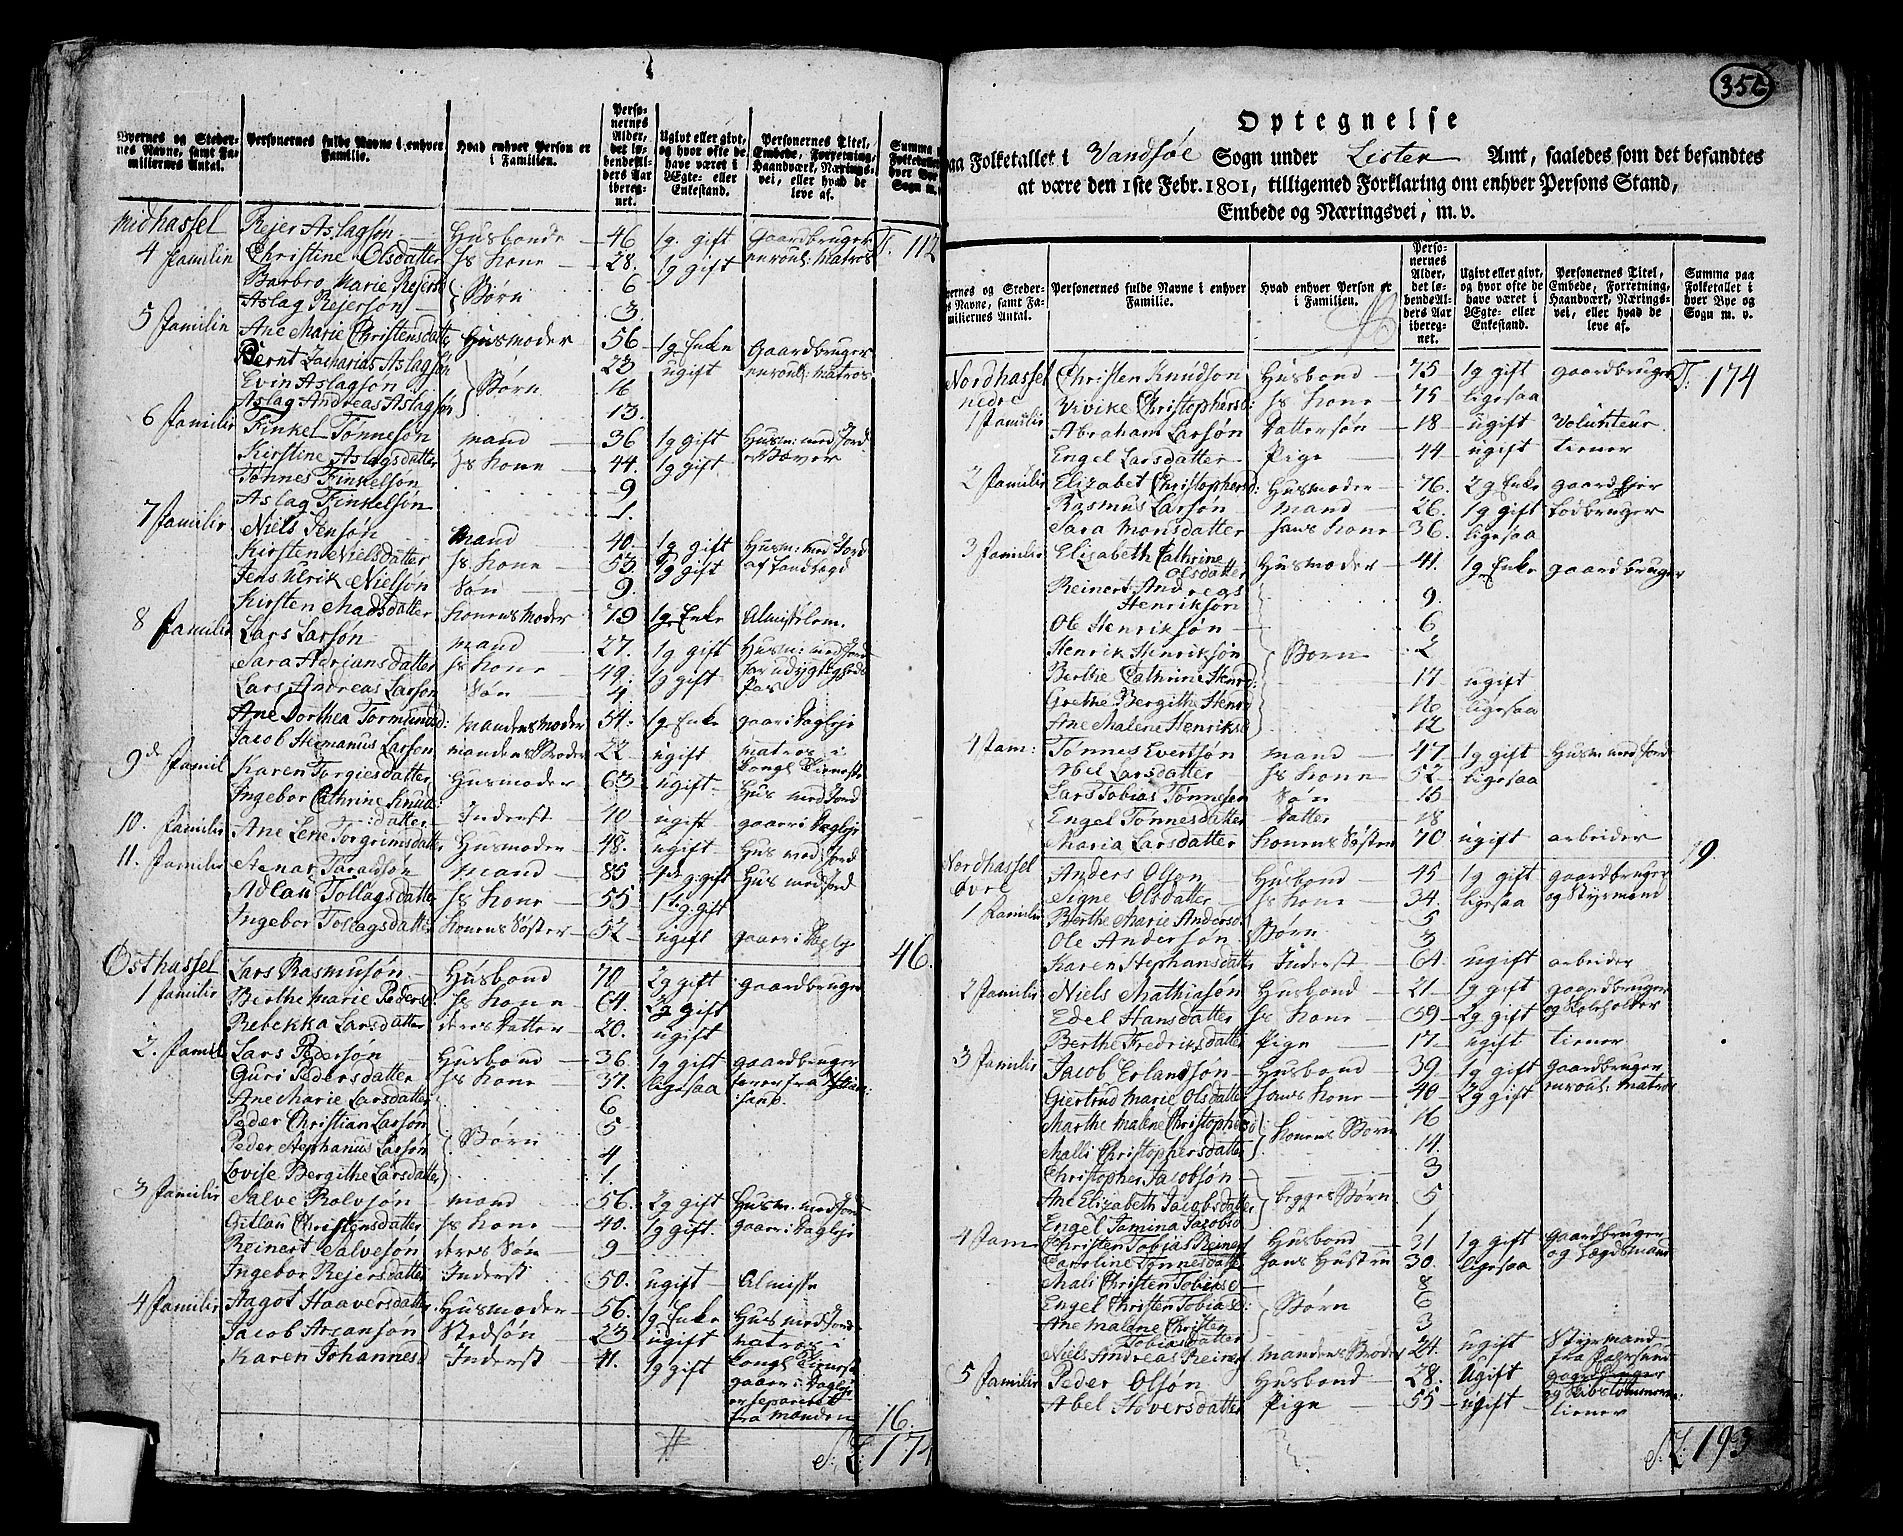 Byernes og Steder-
nes Navne, samt Fa-
miliernes Antal.
Personernes fulde Navne i enhver
Familie.
Hvad enhver Person er
i Familien.
Perso-
nernes
Alder,
det lø-
bende Al-
ders Aar
ibereg-
net.
Ugivt eller givt,
og hvor ofte de
have været i
Ægte- eller
Enkestand.
Personernes Titel,
Embede, Forretning,
Haandværk, Nærings-
vei, eller hvad de
leve af.
Summa
Folketallet
hver Bye
Sogn m.
Midhassel Rejer Aslagsøn Husbonde 46 1g. gift Gaardbruger T. 112
4 Familie Christine Olsdatter hs Kone 28. 1g gift enroul: Matros
Barbro Marie Rejersd 6
Aslag Rejersøn Børn 3.
5 Familie Ane Marie Christensdatter Husmoder 56 1g Enke Gaardbruger
Bernt Zacharias Aslagsøn 23 ugift enroul: Matros
Evin Aslagsøn Børn 16
Aslag Andreas Aslagsøn 13.
6 Familie Finkel Tønnesøn mand 36 1g gift Husm: med Jord
Kirstine Aslagsdatter hs Kone 44. 1g gift
Tønnes Finkelsøn 9
Aslag Finkelsøn 1.
7 Familie Niels Jensøn Mand 40. 1g gift Husm: med Jord
Kirsten Nielsdatter hs Kone 53 1g gift
Jens Ulrik Nielsøn Søn 9.
Kirsten Madsdatter Konens Moder 79 1g Enke Almisselem.
8 Familie Lars Larsøn mand 27. 1g gift Husm: med Jord
Sara Adriansdatter hs Kone 49. 1g gift har udygtigheds
Lars Andreas Larsøn Søn 4 Pas
Ane Dorthea Tormunsd: mandens moder 54. 1g Enke gaar i Dagleje
Jacob Hermanus Larsøn mandens Broder 22 ugift matros i
Kongl Tieneste
9de Famil Karen Torgiesdatter Husmoder 63 ugift Hus med Jord
Ingebor Cathrine Knuds
datter Inderst 40 ugift gaar i Dagleje
10. Familie Ane Lene Torgrimsdatter Husmoder 48. ugift Hus med Jord
11. Familie Stenar Taraldsøn Mand 85 gift Hus med Jord
Adlau Tollagsdatter hs Kone 55 1g gift
Ingebor Tollagsdatter Konens Søster 52 ugift gaar i Dagleje 46.
Østhassel Lars Rasmusøn Husbond 70 2g gift gaardbruger
1 Familie Birthe Marie Pedersd hs Kone 64. 2g gift
Rebekka Larsdatter deres Datter 20. ugift
2. Famil Lars Pedersøn Husbond 36. 1g gift gaardbruger
Guri Pedersdatter hs Kone 37. ligesaa
Ane Marie Larsdatter 6
Peder Christian Larsøn 5
Peder Stephanus Larsøn Børn 4
Lovise Bergithe Larsdatter 1.
3 Familie Salve Rolvsøn mand 56. 2g gift Husm. med Jord
Gitlau Christensdatter hs Kone 40. 1g gift. gaar i Dagleje
Reinert Salvesøn deres Søn 9
Ingebor Rejersdatter Inderst 50. ugift Almisse
4 Familie Aagot Haaversdatter Husmoder 56. 1g Enke Hus med Jord
Jacob Areansøn Stedsøn 23 ugift matros i
Karen Johannesd Inderst 41. 1g gift Kongl Tieneste
gaar i Dagleje
er separeret
fra Manden 16.
S: L: 174
356
Optegnelse
paa Folketallet i Vandsøe Sogn under Lister Amt, saaledes som det befandtes
at være den 1ste Febr. 1801, tilligemed Forklaring om enhver Persons Stand,
Embede og Næringsvei, m. v.
ernes og Steder-
s Navne, samt Fa-
miliernes Antal.
Personernes fulde Navne i enhver
Familie.
Hvad enhver Person er
i Familien.
Perso-
nernes
Alder,
det lø-
bende Al-
ders Aar
ibereg-
net.
Ugivt eller givt,
og hvor ofte de
have været i
Ægte- eller
Enkestand.
Personernes Titel,
Embede, Forretning,
Haandværk, Nærings-
vei, eller hvad de
leve af.
Summa paa
Folketallet i
hver Bye og
Sogn m. v.
Nordhassel Christen Knudsøn Husbond 75 1g gift gaardbruger T: 174
nedre Vivike Christophersd: hs Kone 75 ligesaa
1 Familie Abraham Larsøn Dattersøn 18 ugift Volunteur
Engel Larsdatter Pige 44 ugift tiener
2 Familie Elizabet Christophersd: Husmoder 76. 2g Enke gaard Ejer
Rasmus Larsøn mand 26. 1g gift Lodbruger
Sara Monsdatter hans Kone 36. ligesaa
3 Familie Elizabeth Cathrine
Olsdatter Husmoder 41. 1g Enke gaardbruger
Reinert Andreas
Henriksøn 9.
Ole Henriksøn 6
Henrik Henriksøn Børn 2
Berthe Cathrine Henrd: 17 ugift
Grethe Bergithe Henrd 16 ligesaa
Ane Malene Henriksd 12
4 Fam: Tønnes Evertsøn mand 47 1g gift Husm med Jord
Abel Larsdatter hs Kone 52. ligesaa
Lars Tobias Tønnesøn Søn 15
Engel Tønnesdatter Datter 18
Maria Larsdatter Konens Søster 70 ugift arbeider 19.
Nordhassel Anders Olsøn Husbond 45 1g gift gaardbruger
øvre Signe Olsdatter hs Kone 34. ligesaa og Styrmand
1 Familie Berthe Marie Andersd 5
Ole Andersøn Børn 3
Karen Stephansdatter Inderst 64. ugift arbeider
2 Familie Niels Mathiasøn Husbond 21 1g gift gaardbruger
Edel Hansdatter hs Kone 59 2g gift og Skoleholder
Berthe Fredriksdatter Pige 17 ugift tiener
3 Familie Jacob Erlandsøn Husbond 39 1g gift Gaardbruger
Giertrud Marie Olsdatter hans Kone 40 2g gift enroul: matros
Marthe Malene Christophersd 16
Malli Christophersdatter Konens Børn 14.
Christopher Jacobsøn 3
Ane Elizabeth Jacobsdatter begges Børn 5
Engel Tamina Jacobsd 1
4 Fam Christen Tobias Reinert Husbond 31 1g gift gaardbruger
Caroline Tønnesdatt hans Hustru 30. ligesaa og Lægdsmand
Mali Christen Tobiasd 8
Engel Christen Tobiasd: Børn 6
Ane Malene Christen
Tobiasdatter 3
Niels Andreas Reinert mandens Broder 24. ugift Styrmand
5 Familie Peder Olsøn Husbond 28. Ugift gaardbruger
Abel Hoversdatter Pige 55 ugift tiener
S: L: 193